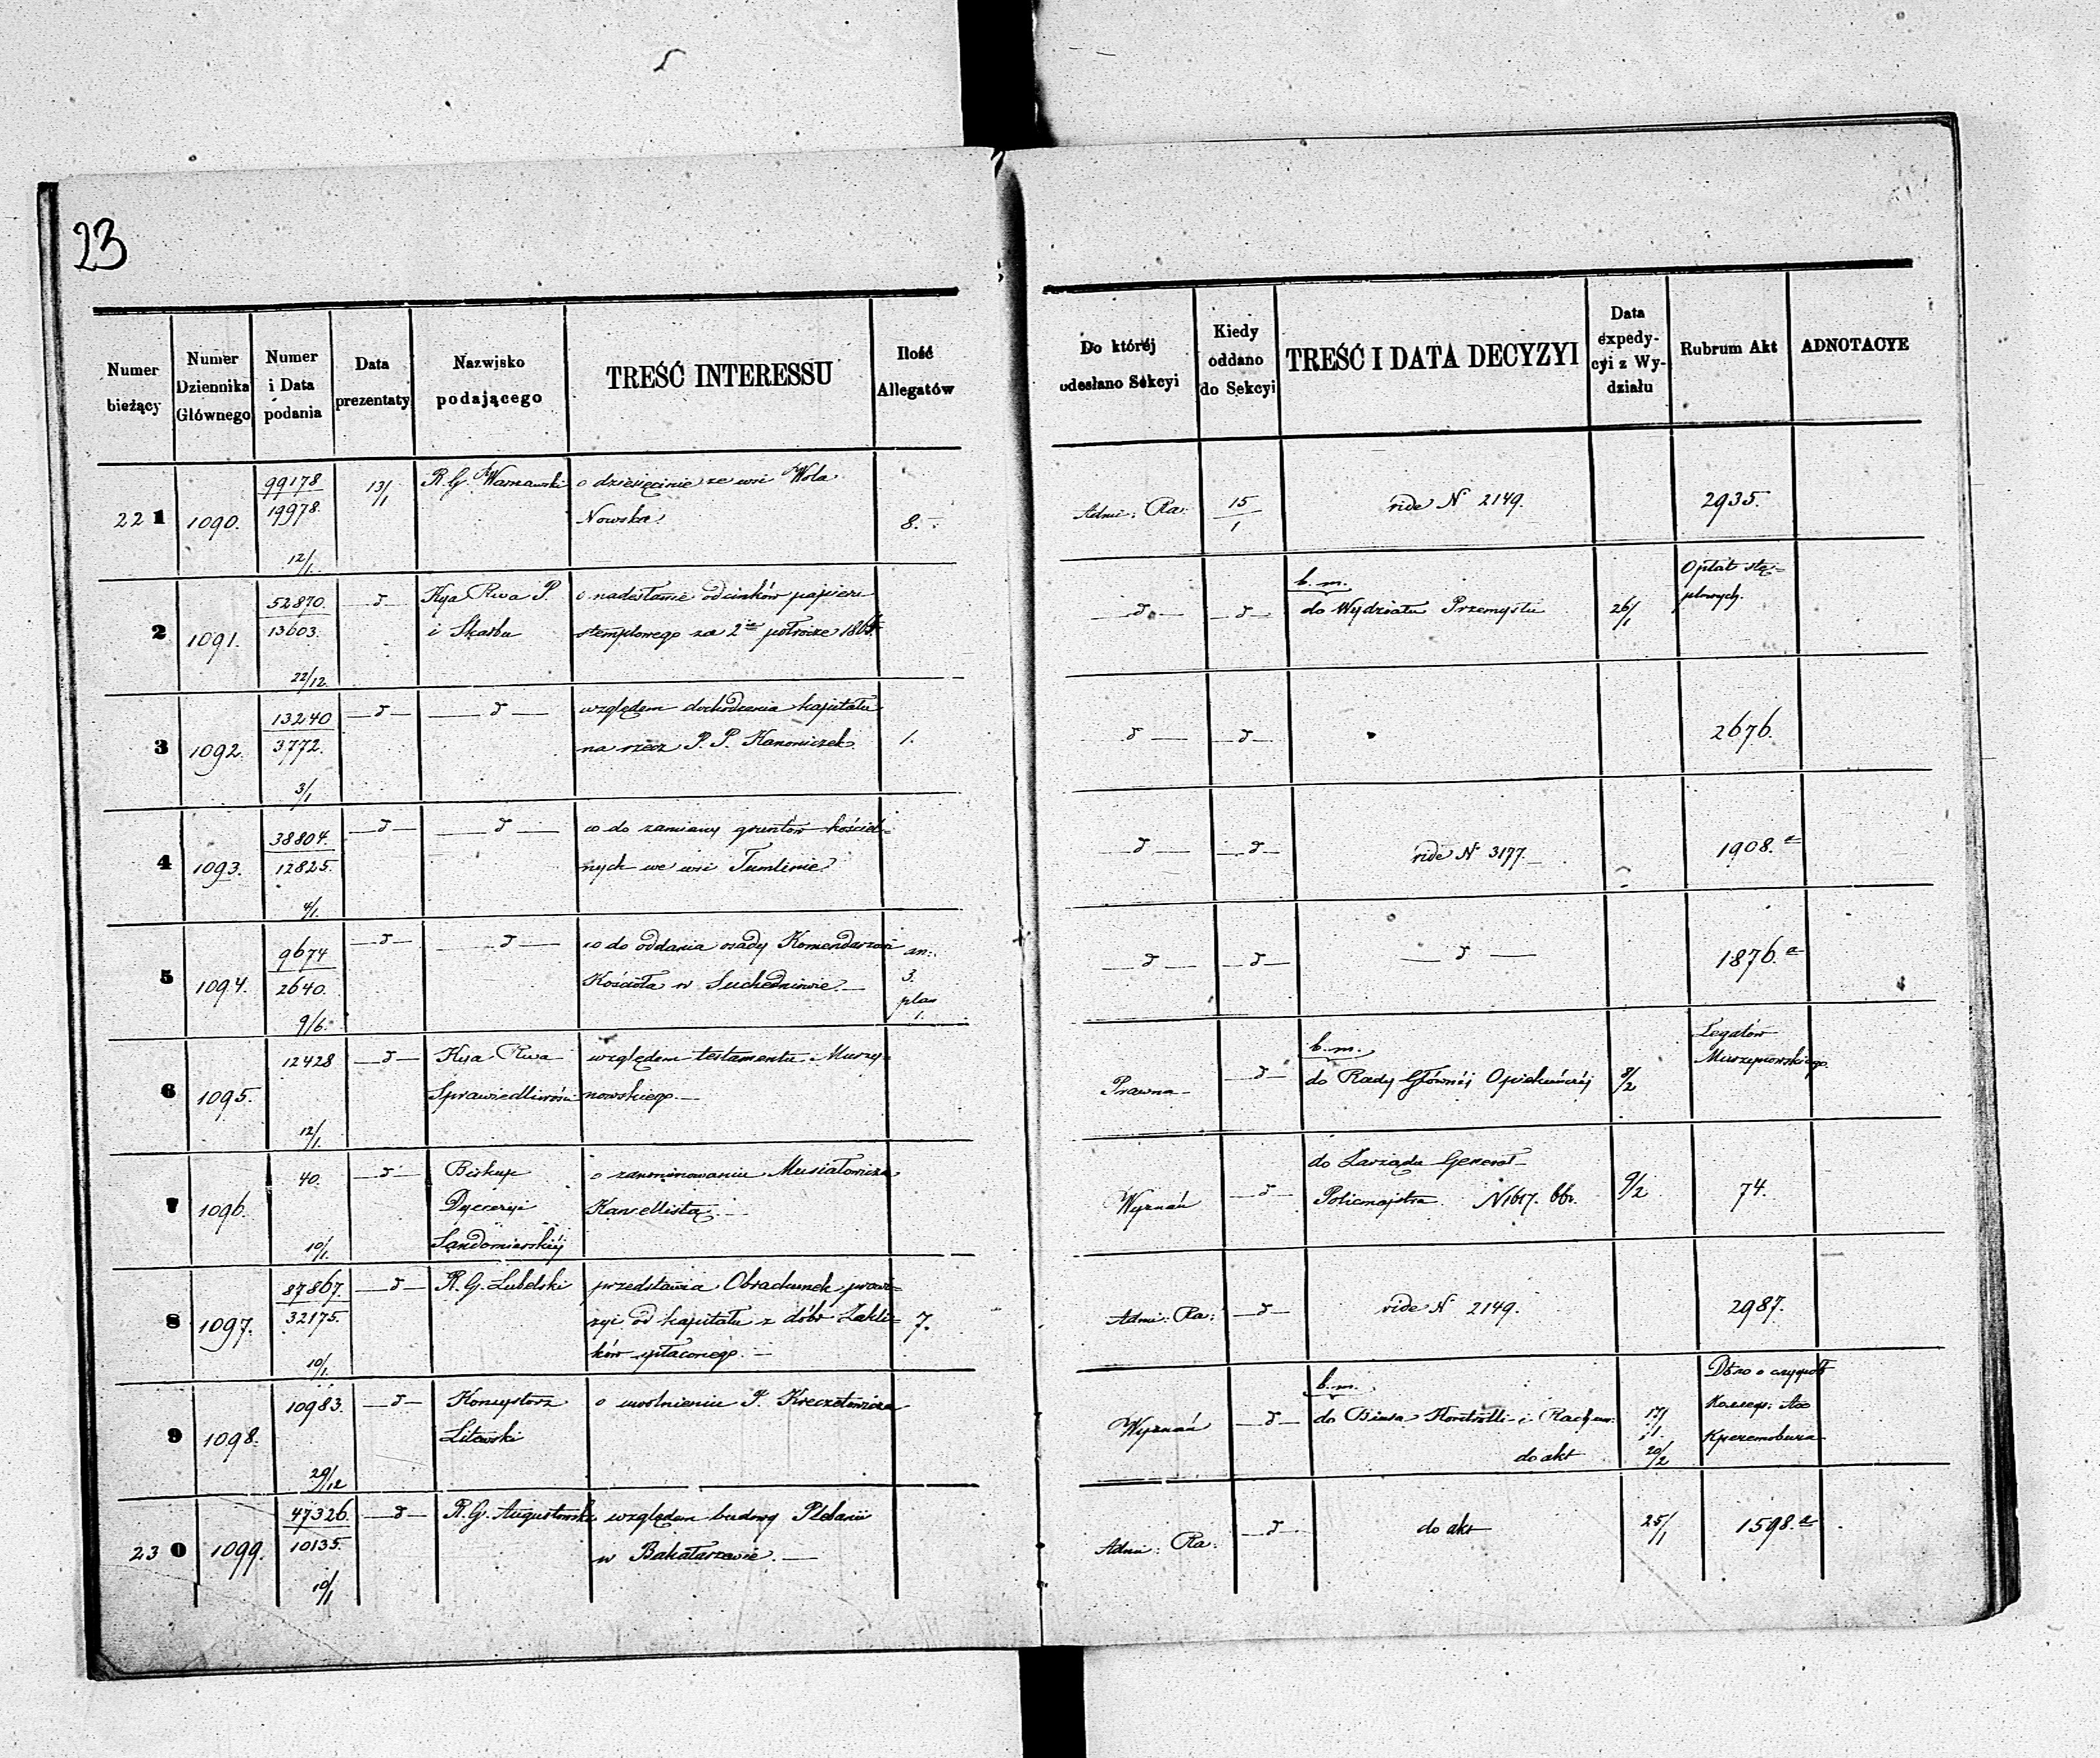 23
Numer bieżący
Numer Dziennika Głównego
Numer i Data podania
Data prezentaty
Nazwisko podającego
TREŚĆ INTERESSU
Ilość Allegatów
Do któréj odesłano Sekcyi
Kiedy oddano do Sekcyi
TREŚĆ I DATA DECYZYI
Data expedycyi z Wydziału
Rubrum Akt
ADNOTACYE
221 1090. 99178 19978. 12/1. 13/1 R. G. Warszawski o dziesięcinie ze wsi Wola
Nowska. 8. Admi: Ra: 15/1 vide N 2149. 2935.
2 1091. 52870. 13603. 22/12. d Kya Rwa P. o nadesłanie odcinków papieru
i Skarbu stemplowego za 2ie półrocze d d b. m.
do Wydziału Przemysłu 26/1 Opłat stę=
plowych.
3 1092. 13240 3772. 3/1 d d względem dochodzenia kapitału
na rzecz P. P. Kanoniczek 1. d d 2676.
4 1093. 38804. 12825. 4/1. d d co do zamiany gruntów kościel=
nych we wsi Tumlinie. d d vide N 3177. 1908. a
5 1094. 9674 2640. 9/6. d d co do oddania osady
Kościoła w Suchedniowie. an:
3.
plan
1. d d d 1876. a
6 1095. 12428 12/1. d Kya Rwa względem testamentu Muszy=
Sprawiedliwości nowskiego. Prawna d b. m.
do Rady Głównéj Opiekuńczéj 8/2 Legatów
Muszynowskiego.
7 1096. 40. 10/1. d Biskup o zanominowaniu Musiałowicza
Dyecezyi Kancellistą.
Sandomierskiéj Wyznań d do Zarządu Generał
Policmajstra N 1617. 9/2 74.
8 1097. 87867. 32175. 10/1. d R. G. Lubelski przedstawia Obrachunek prowi=
zyi od kapitału z dóbr Zakli=
ków spłaconego. 7. Admi: Ra: d vide N 2149. 2987.
9 1098. 10983. 29/12 d Konsystorz o uwolnieniu P. Kreczetowicza
Litewski Wyznań d b. m.
do Biura Kontrolli i Rachun: 17/1.
do akt 20/2
230 1099. 47326. 10135. 10/1 d R. G. Augustowski względem budowy Plebanii
w Bakałarzewie. Admi: Ra: d do akt 25/1 1598. a